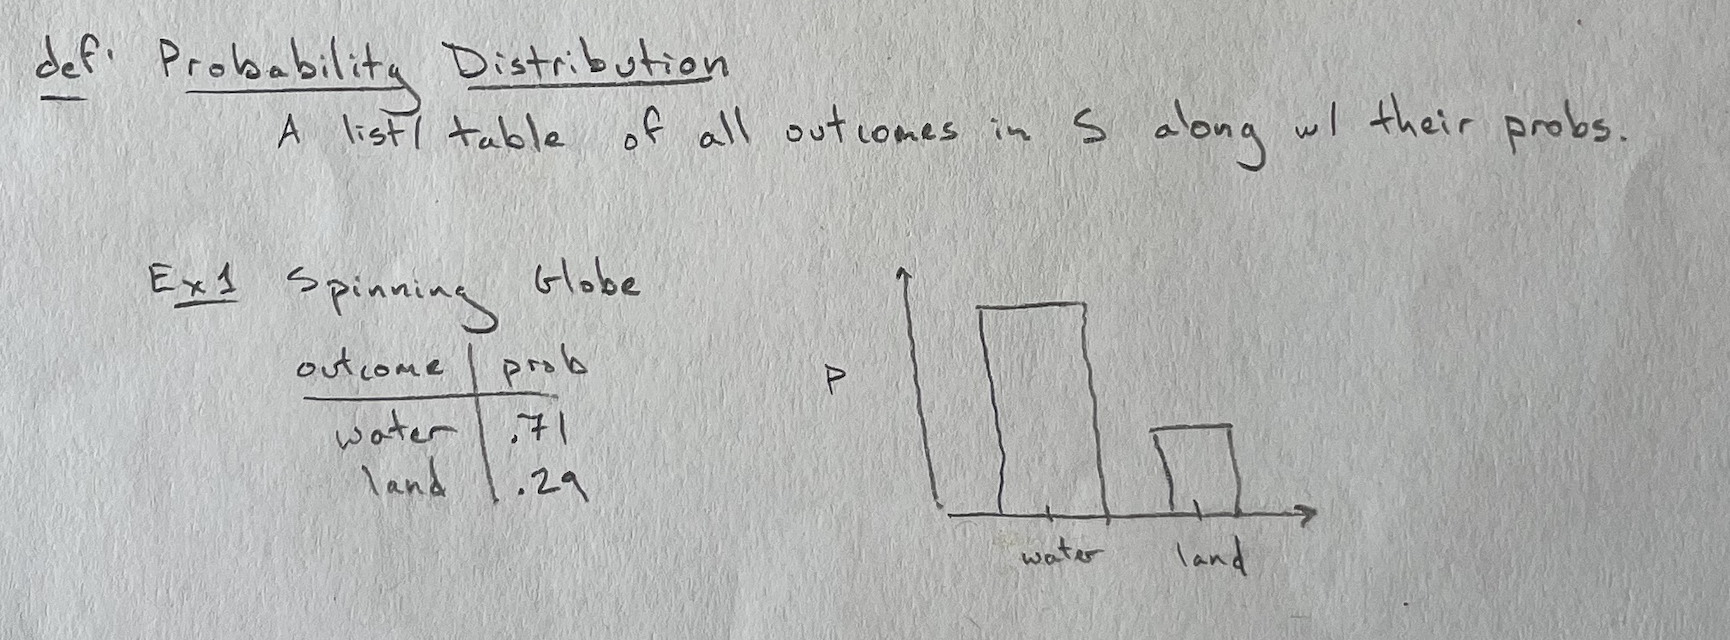 def: Probability Distribution
A list/ table of all outcomes in S along w/ their probs.
Ex1 Spinning Globe
outcome | prob
water | .71
land | .29
P
water land